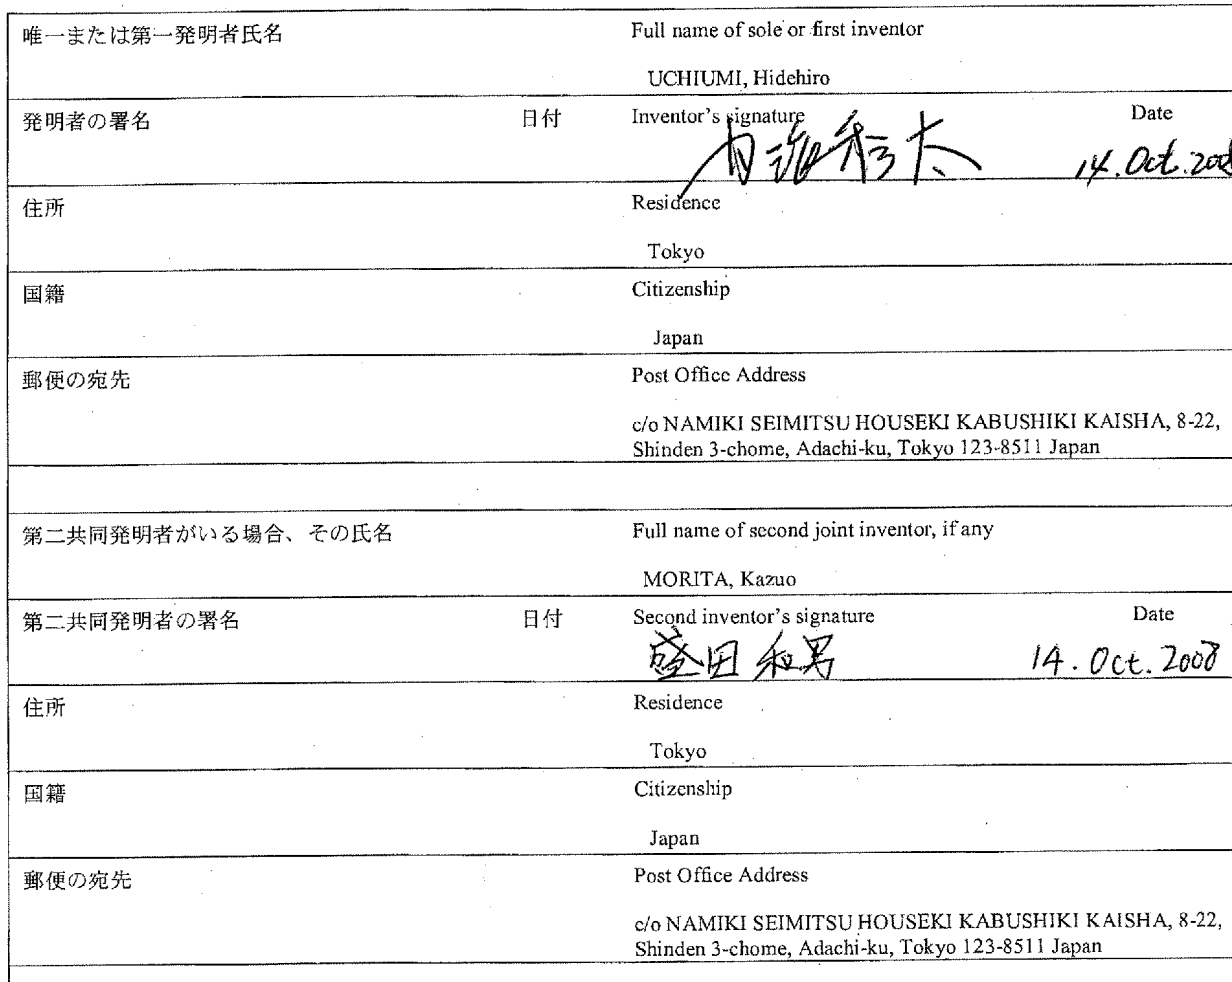 唯一または第一発明者氏名 Full name of sole or first inventor
UCHIUMI, Hidehiro
発明者の署名 日付 Inventor's signature Date
14. Oct. 200
住所 Residence
Tokyo
国籍 Citizenship
Japan
郵便の宛先 Post Office Address
c/o NAMIKI SEIMITSU HOUSEKI KABUSHIKI KAISHA, 8-22,
Shinden 3-chome, Adachi-ku, Tokyo 123-8511 Japan
第二共同発明者がいる場合、その氏名 Full name of second joint inventor, if any
MORITA, Kazuo
第二共同発明者の署名 日付 Second inventor's signature Date
盛田和男 14. Oct. 2008
住所 Residence
Tokyo
国籍 Citizenship
Japan
郵便の宛先 Post Office Address
c/o NAMIKI SEIMITSU HOUSEKI KABUSHIKI KAISHA, 8-22,
Shinden 3-chome, Adachi-ku, Tokyo 123-8511 Japan